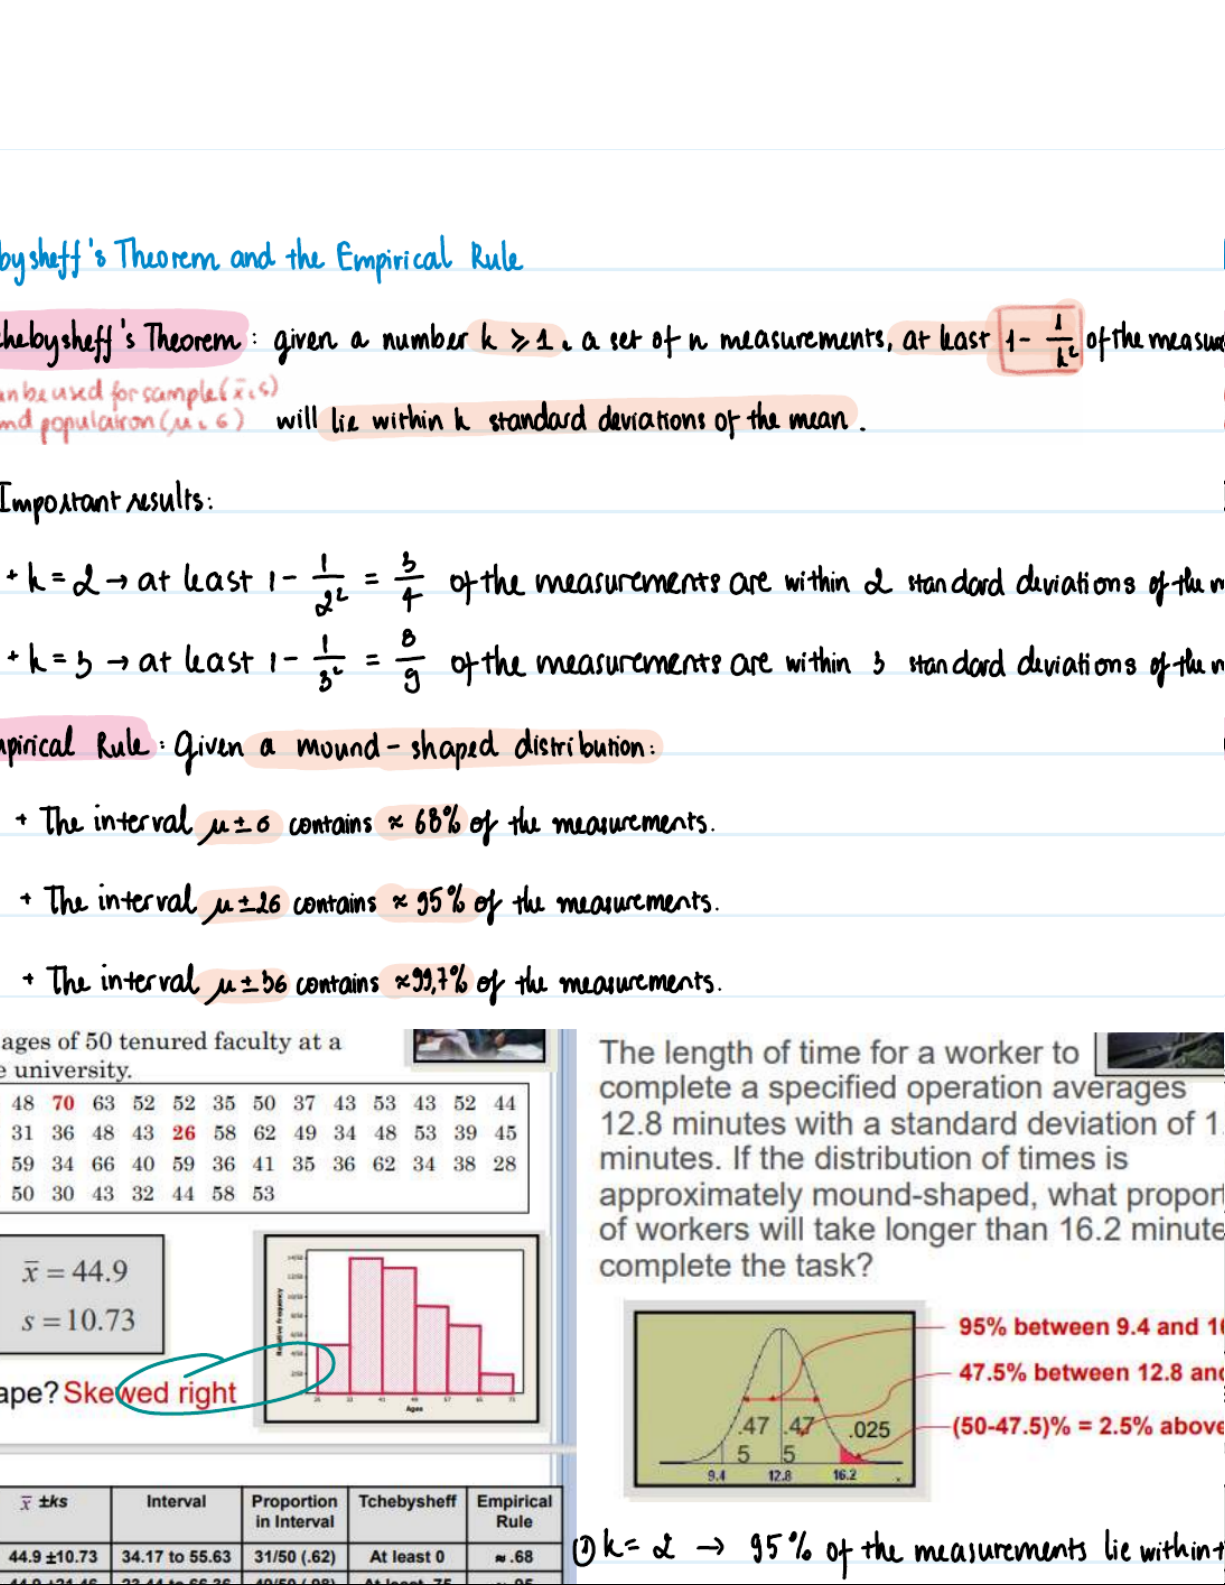 bysheff's Theorem and the Empirical Rule
chebysheff's Theorem : given a number k ≥ 1, a set of n measurements, at least 1 - 1/k² of the measu
an be used for sample (x̄, s)
nd populairon (μ, σ)
will lie within k standard deviations of the mean .
Important results:
+ k = 2 → at least 1 - 1/2² = 3/4 of the measurements are within 2 standard deviations of the m
+ k = 3 → at least 1 - 1/3² = 8/9 of the measurements are within 3 standard deviations of the m
mpirical Rule : Given a mound-shaped distribution:
+ The interval μ ± σ contains ≈ 68% of the measurements.
+ The interval μ ± 2σ contains ≈ 95% of the measurements.
+ The interval μ ± 3σ contains ≈ 99,7% of the measurements.
ages of 50 tenured faculty at a
e university.
48 70 63 52 52 35 50 37 43 53 43 52 44
31 36 48 43 26 58 62 49 34 48 53 39 45
59 34 66 40 59 36 41 35 36 62 34 38 28
50 30 43 32 44 58 53
x̄ = 44.9
s = 10.73
ape? Skewed right
Relative frequency
Ages
x̄ ±ks Interval Proportion in Interval Tchebysheff Empirical Rule
44.9 ±10.73 34.17 to 55.63 31/50 (.62) At least 0 ≈ .68
The length of time for a worker to
complete a specified operation averages
12.8 minutes with a standard deviation of 1.
minutes. If the distribution of times is
approximately mound-shaped, what propor
of workers will take longer than 16.2 minute
complete the task?
95% between 9.4 and 1
47.5% between 12.8 and
(50-47.5)% = 2.5% above
.47 .47 .025
5 5
9.4 12.8 16.2
① k = 2 → 95% of the measurements lie within